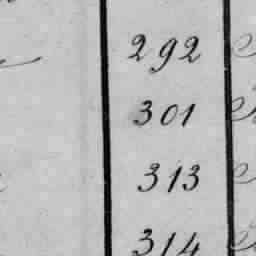 292
301
313
314